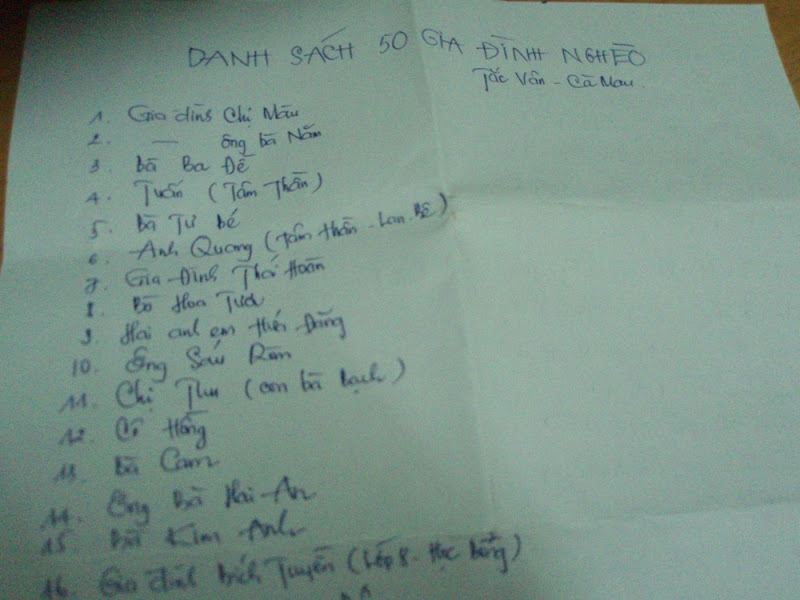 DANH SÁCH 50 GIA ĐÌNH NGHÈO
Tắc Vân - Cà Mau
1. Gia đình Chị Màu
2. — ông bà Năm
3. Bà Ba Đế
4. Tuấn (Tâm Thần)
5. Bà Tư bé
6. Anh Quang (Tâm thần - Lan - Bê)
7. Gia Đình Thái Hoàn
8. Bà Hoa Tươi
9. Hai anh em Đăng
10. Ông Sáu Rôm
11. Chị Thu (con bà Bạch)
12. Cô Hồng
13. Bà Cam
14. Ông Bà Hai - An
15. Bà Kim Anh
16. Gia đình Bích Tuyền (Lớp 8 - Học Bổng)